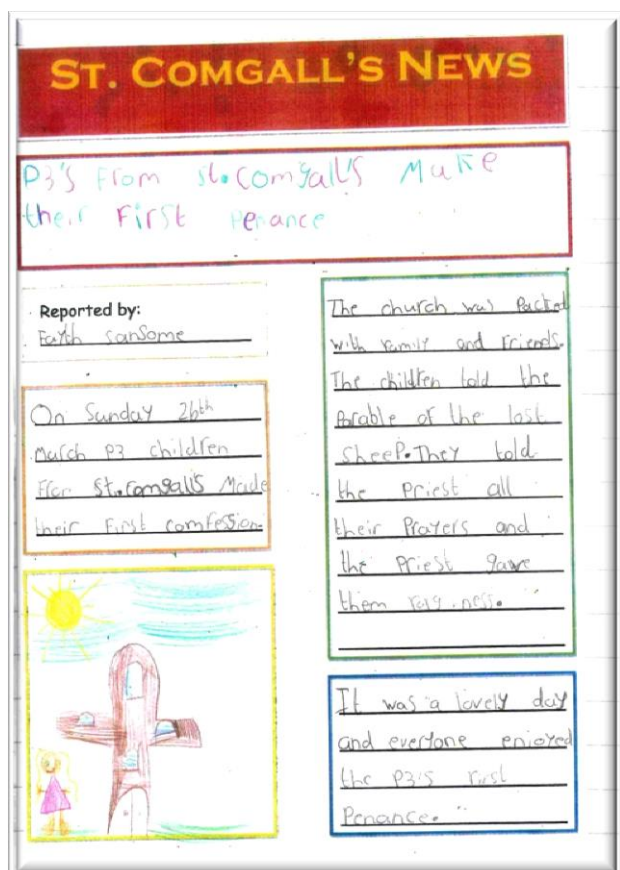 ST. COMGALL'S NEWS
P3's From St. Comgall's Make
their First Penance
Reported by:
Fayth Sansome
On Sunday 26th
March P3 children
St. Comgall's Made
their First comfession.
The church was Packed
with Family and Friends.
The children told the
Parable of the lost
sheep. They told
the Priest all
their Prayers and
the Priest gave
them
It was a lovely day
and everyone enjoyed
the P3's First
Penance.